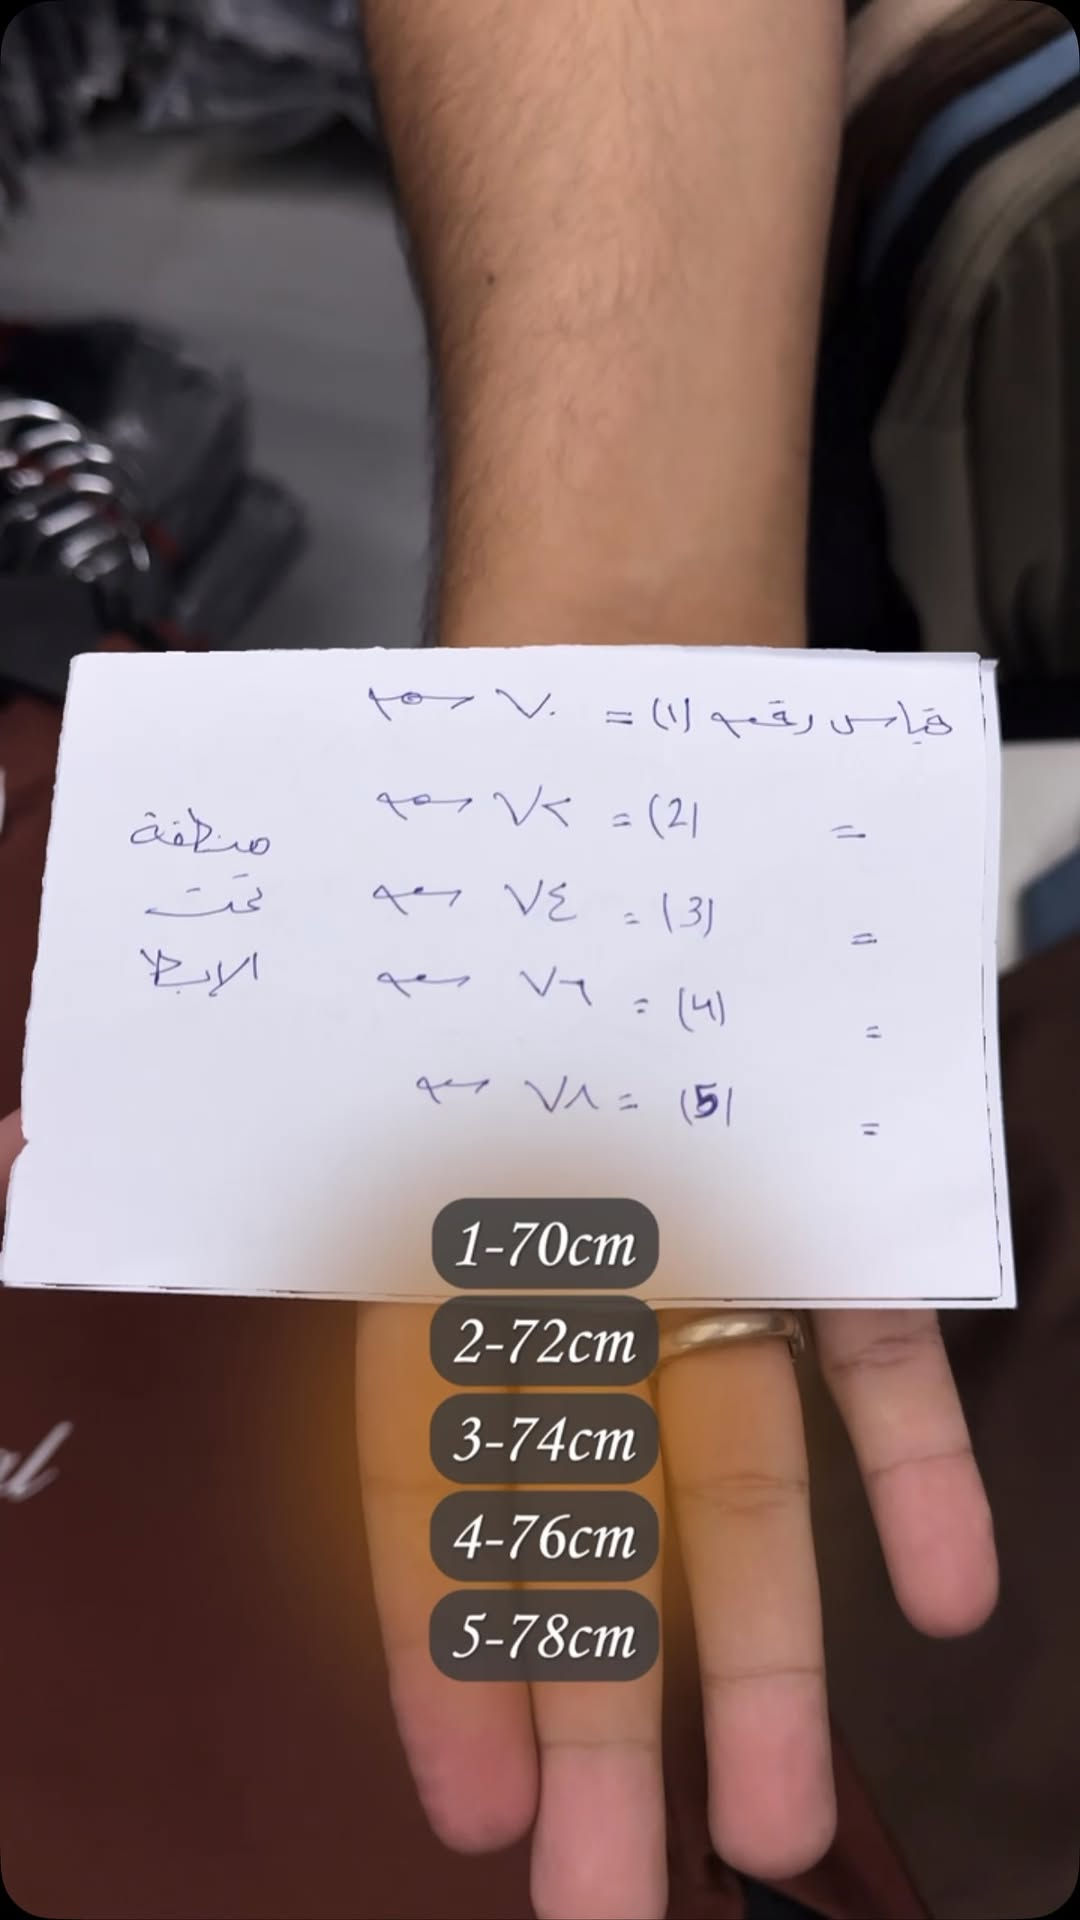 قياس رقم (١) = ٧٠ سم
= (2) = ٧٢ سم
= (3) = ٧٤ سم
= (4) = ٧٦ سم
= (5) = ٧٨ سم
منطقة
تحت
الإبط
1-70cm
2-72cm
3-74cm
4-76cm
5-78cm